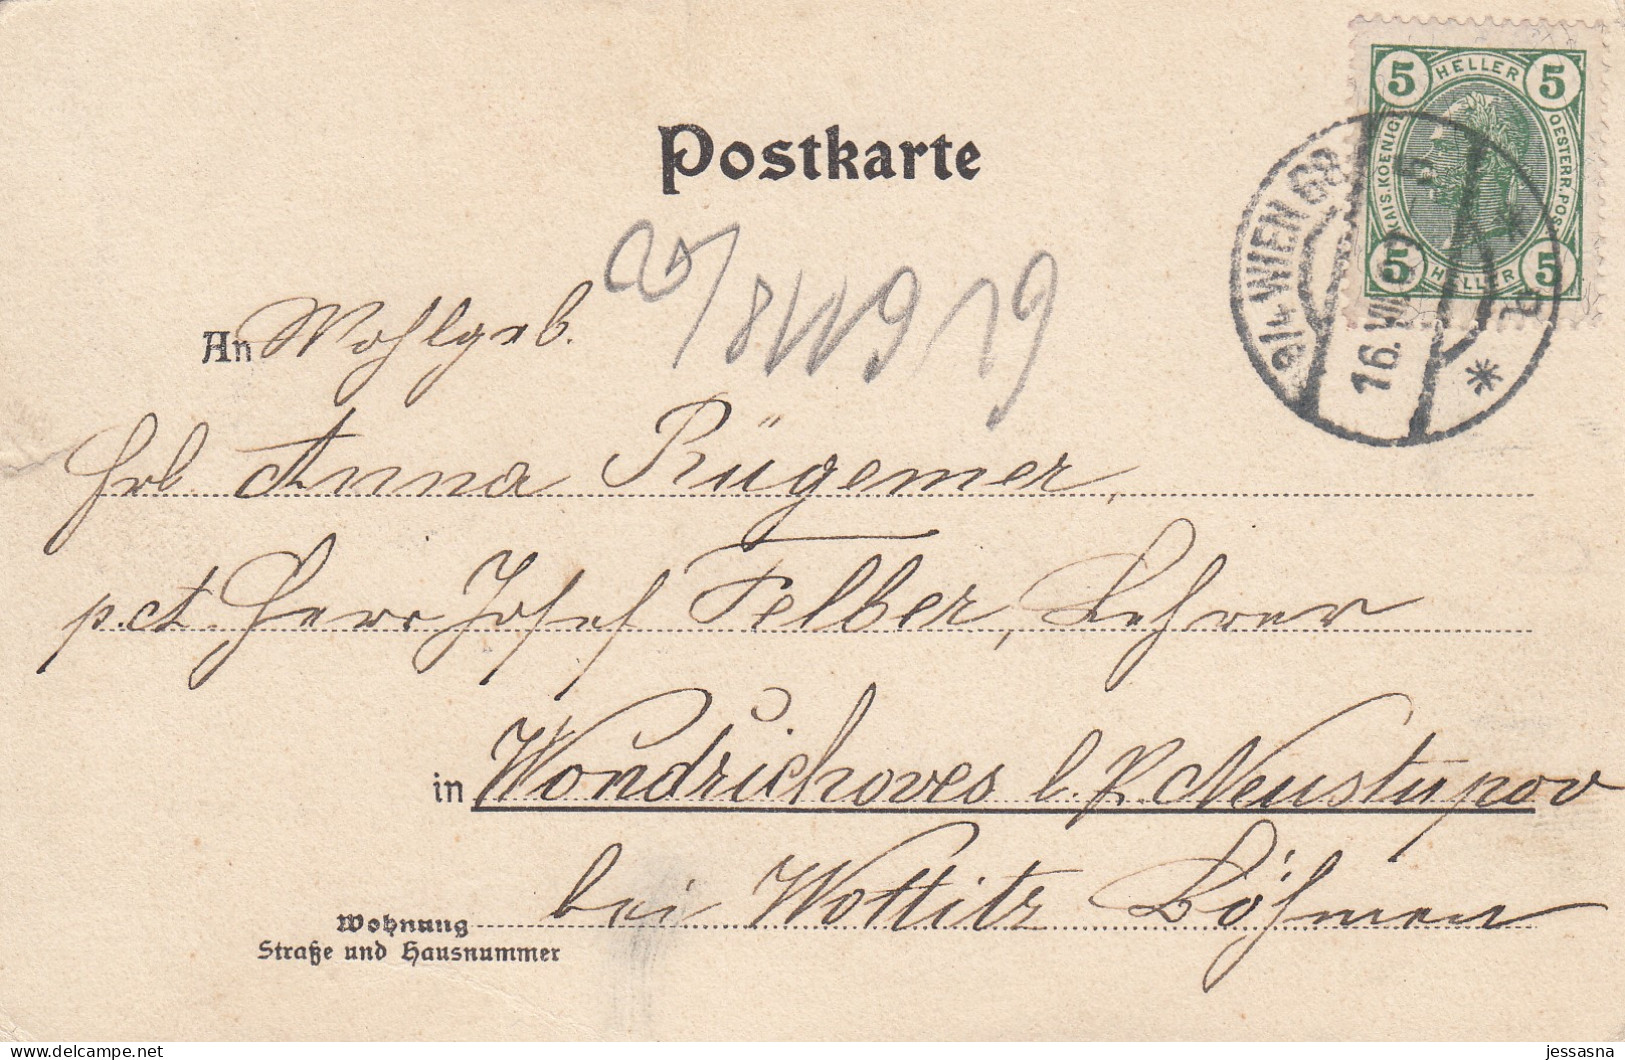 Postkarte
5 HELLER 5
KAIS.KOENIGL.
OESTERR.POST
5 HELLER 5
9/4 WIEN 68
16.VII.
19
An Wohlgeb.
Frl. Anna Rügemer,
p.ct. Herr Josef Felber, Lehrer
in Wondřichoves l. P. Neustupov
bei Wottitz Böhmen
Wohnung
Straße und Hausnummer
jessasna